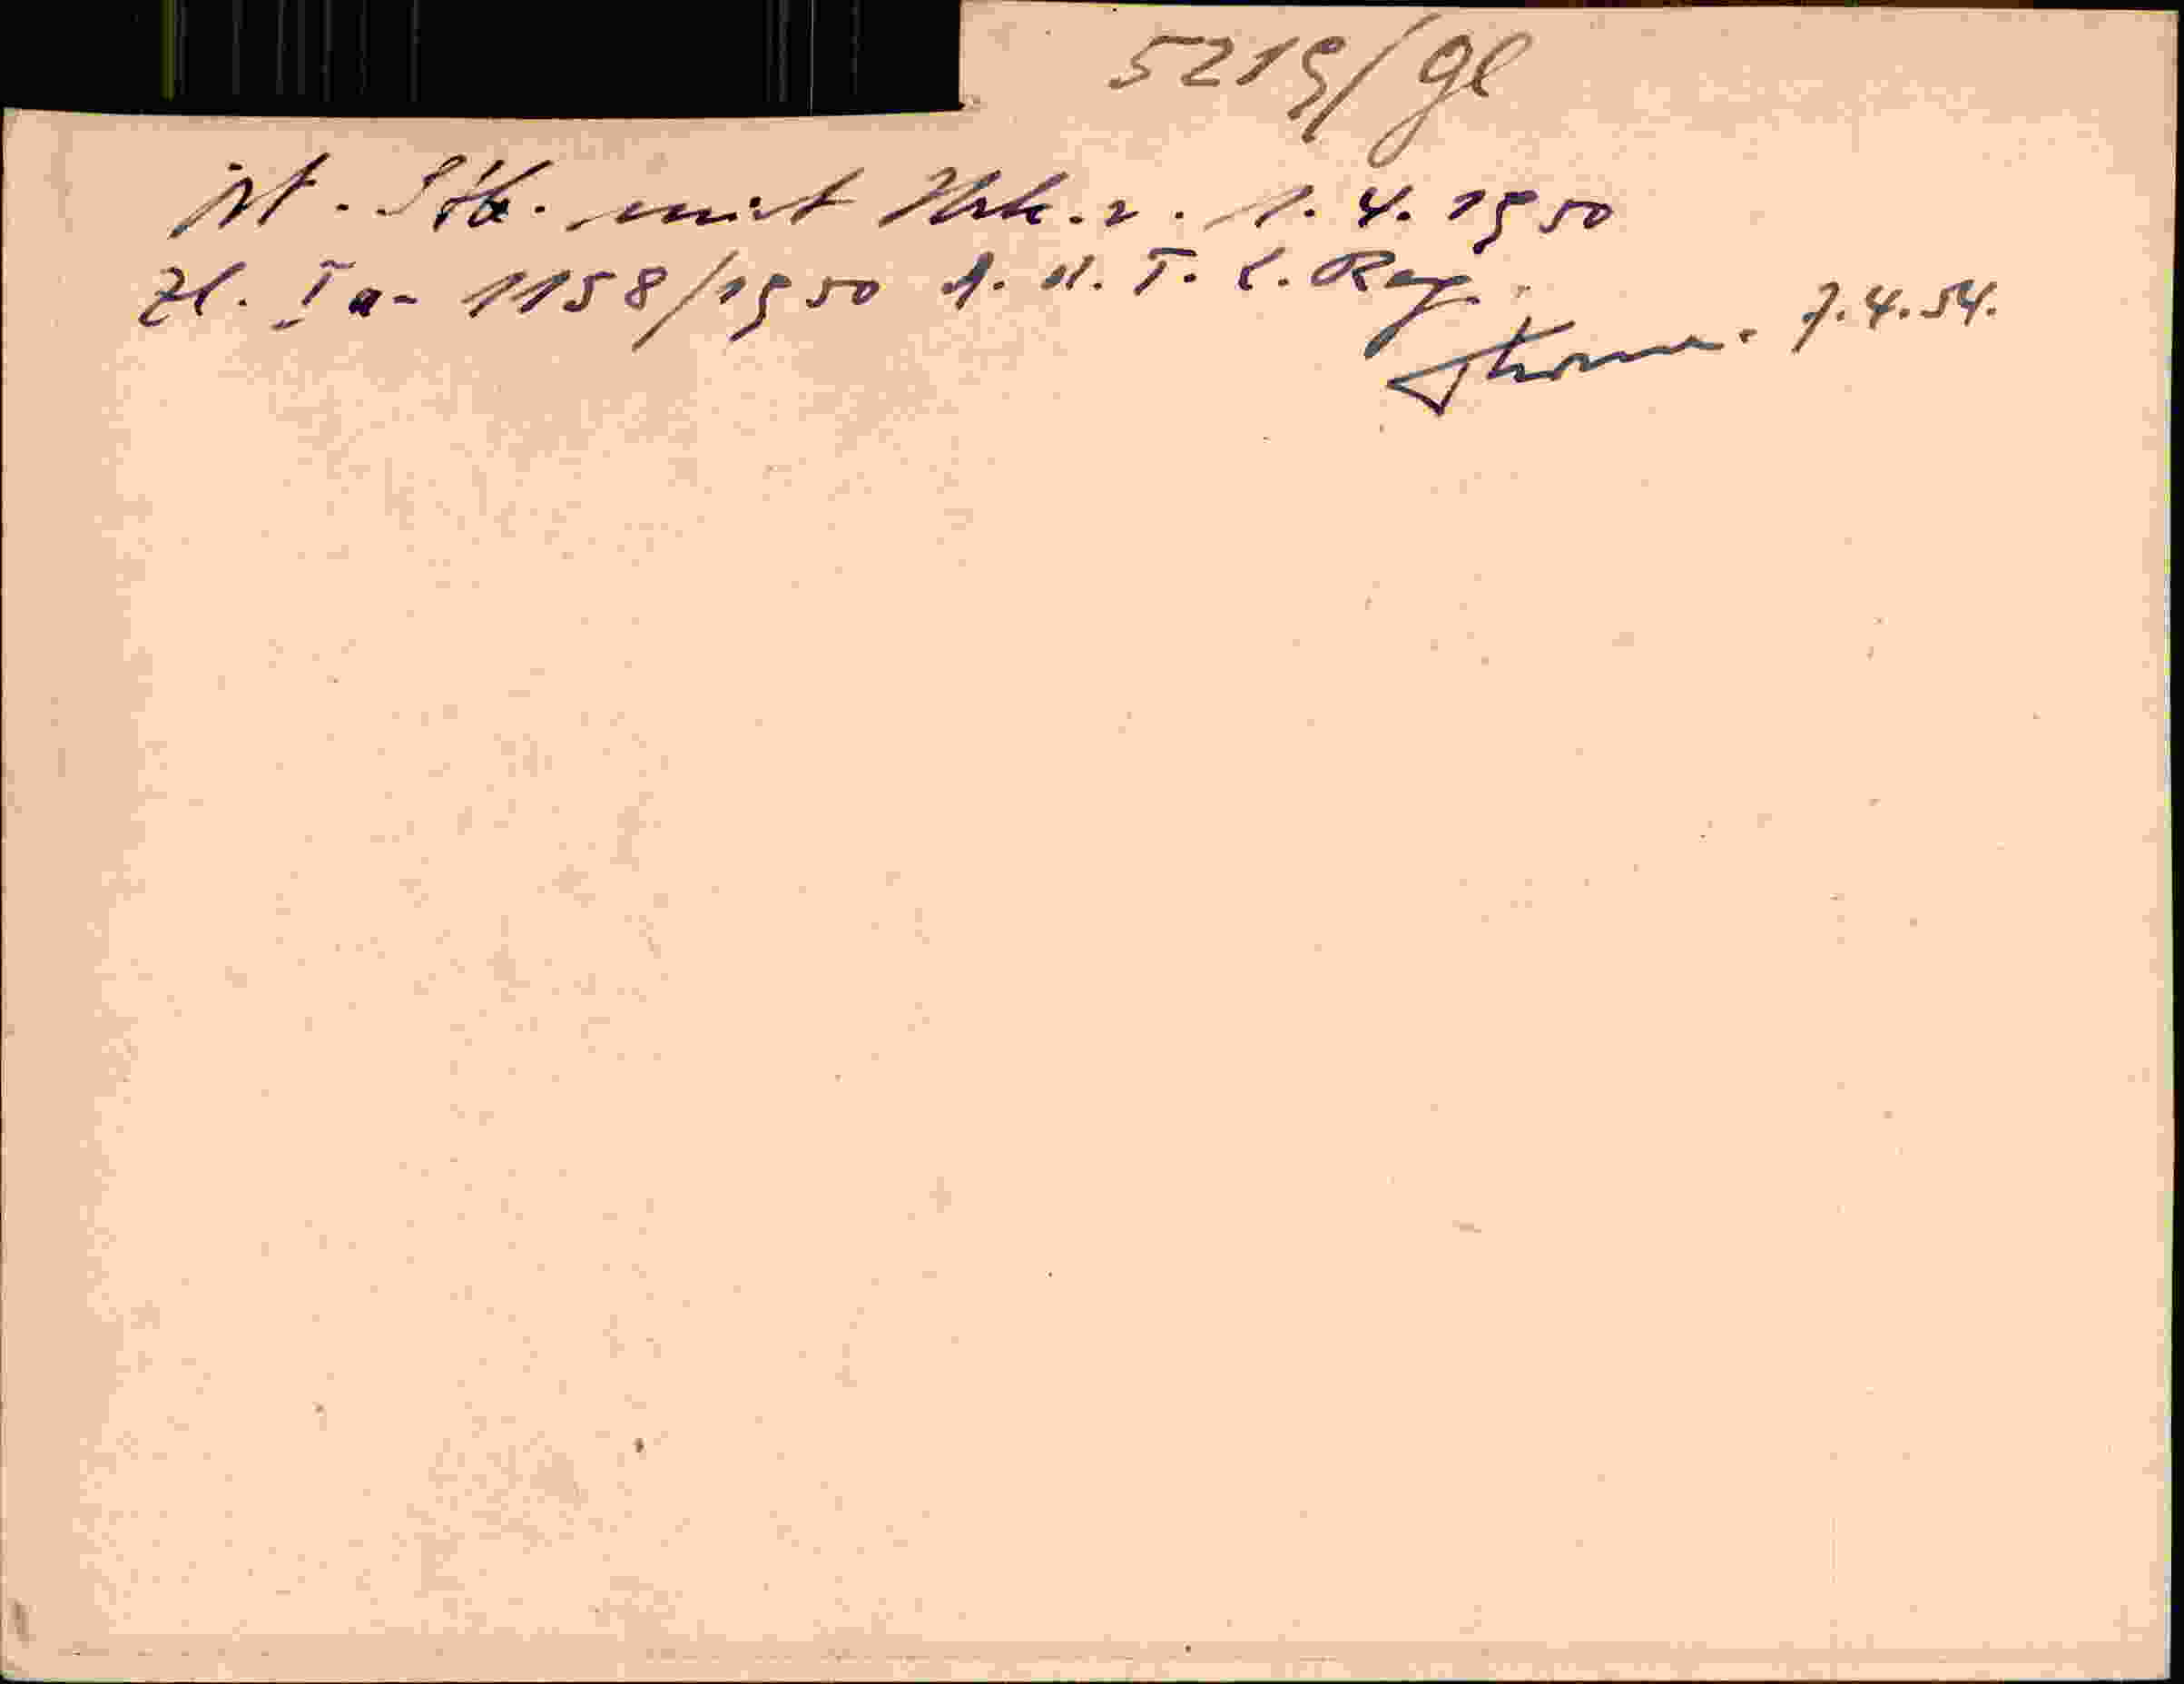 5219/gl
öst. Stb. mit Urk. v. 1. 4. 1950
Zl. Ia- 1158/1950 d. A. T. L. Reg.
7.4.54.